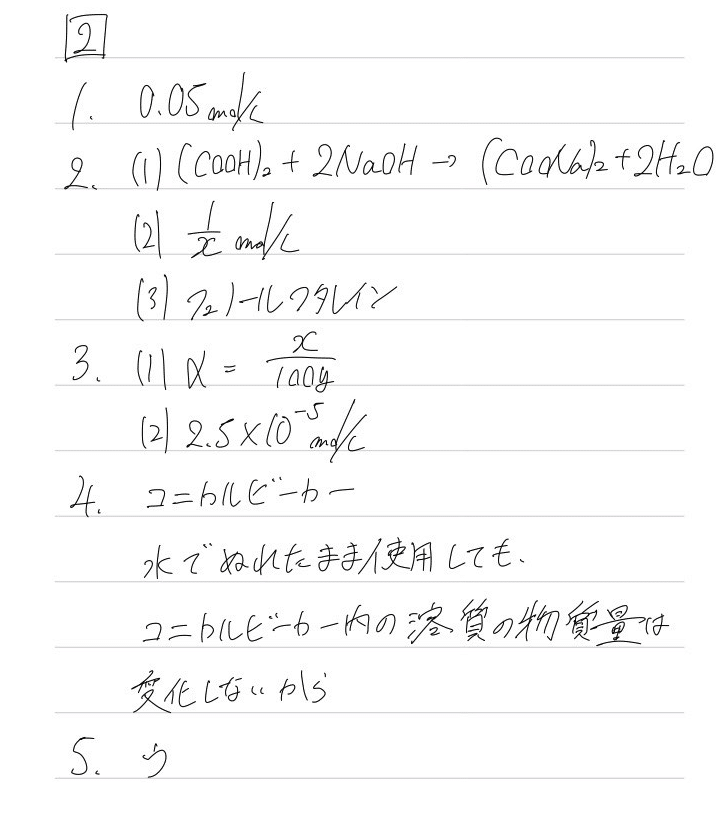 2
1. 0.05 mol/L
2. (1) (COOH)₂ + 2NaOH → (COONa)₂ + 2H₂O
(2) 1/x mol/L
(3) フェノールフタレイン
3. (1) α = x/100y
(2) 2.5×10⁻⁵ mol/L
4. コニカルビーカー
水でぬれたまま使用しても、
コニカルビーカー内の溶質の物質量は
変化しないから
5. う